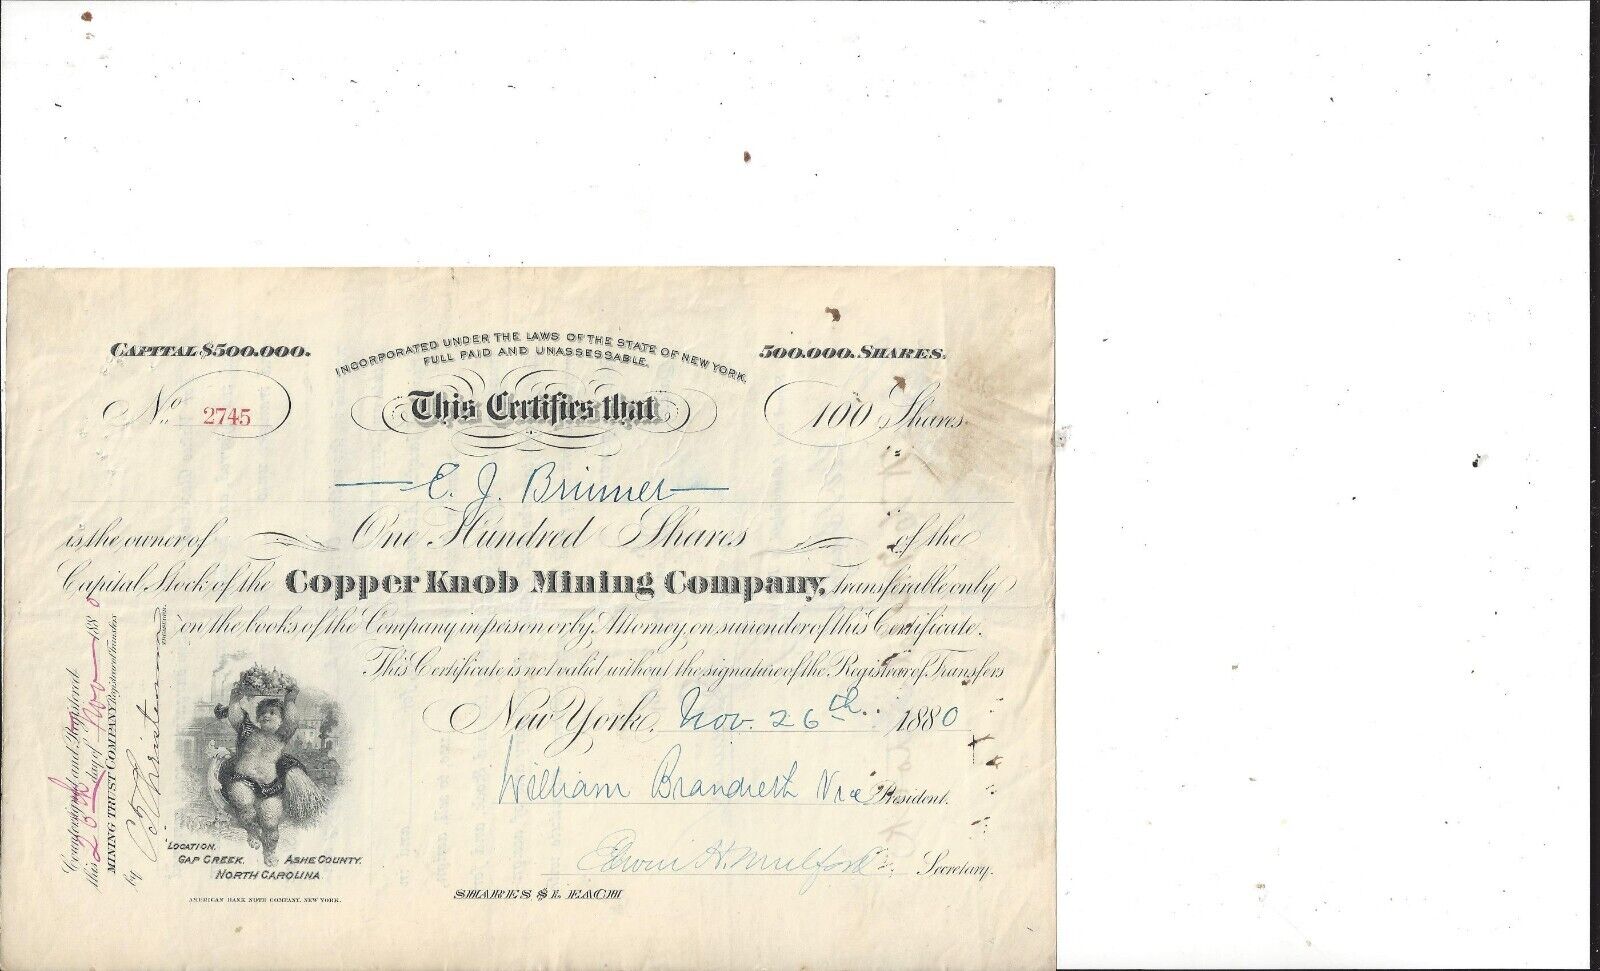 CAPITAL $500.000.
INCORPORATED UNDER THE LAWS OF THE STATE OF NEW YORK.
FULL PAID AND UNASSESSABLE.
500.000. SHARES.
No. 2745
This Certifies that
100 Shares.
E. J. Brimmer
is the owner of One Hundred Shares of the
Capital Stock of the Copper Knob Mining Company, transferable only
on the books of the Company in person or by Attorney, on surrender of this Certificate.
This Certificate is not valid without the signature of the Registrar of Transfers
New York, Nov. 26th 1880
William Brandreth Vice President.
Edwin H. Mulford Secretary.
SHARES $1. EACH
LOCATION.
GAP CREEK. ASHE COUNTY.
NORTH CAROLINA
AMERICAN BANK NOTE COMPANY, NEW YORK.
Countersigned and Registered
this 26th day of Nov 1880
MINING TRUST COMPANY Registrar of Transfers
by TREASURER.